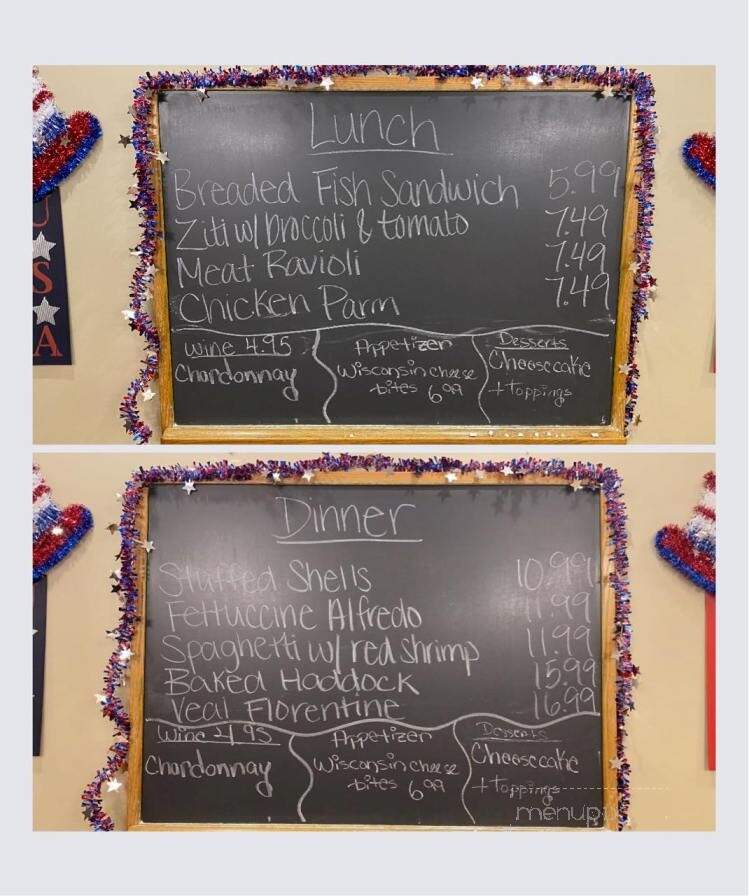 U
S
A
Lunch
Breaded Fish Sandwich 5.99
Ziti w/ broccoli & tomato 7.49
Meat Ravioli 7.49
Chicken Parm 7.49
Wine 4.95
Chardonnay
Appetizer
Wisconsin cheese
bites 6.99
Desserts
Cheesecake
+ toppings
Dinner
Stuffed Shells 10.99
Fettuccine Alfredo 11.99
Spaghetti w/ red shrimp 11.99
Baked Haddock 15.99
Veal Florentine 16.99
Wine 4.95
Chardonnay
Appetizer
Wisconsin cheese
bites 6.99
Desserts
Cheesecake
+ toppings